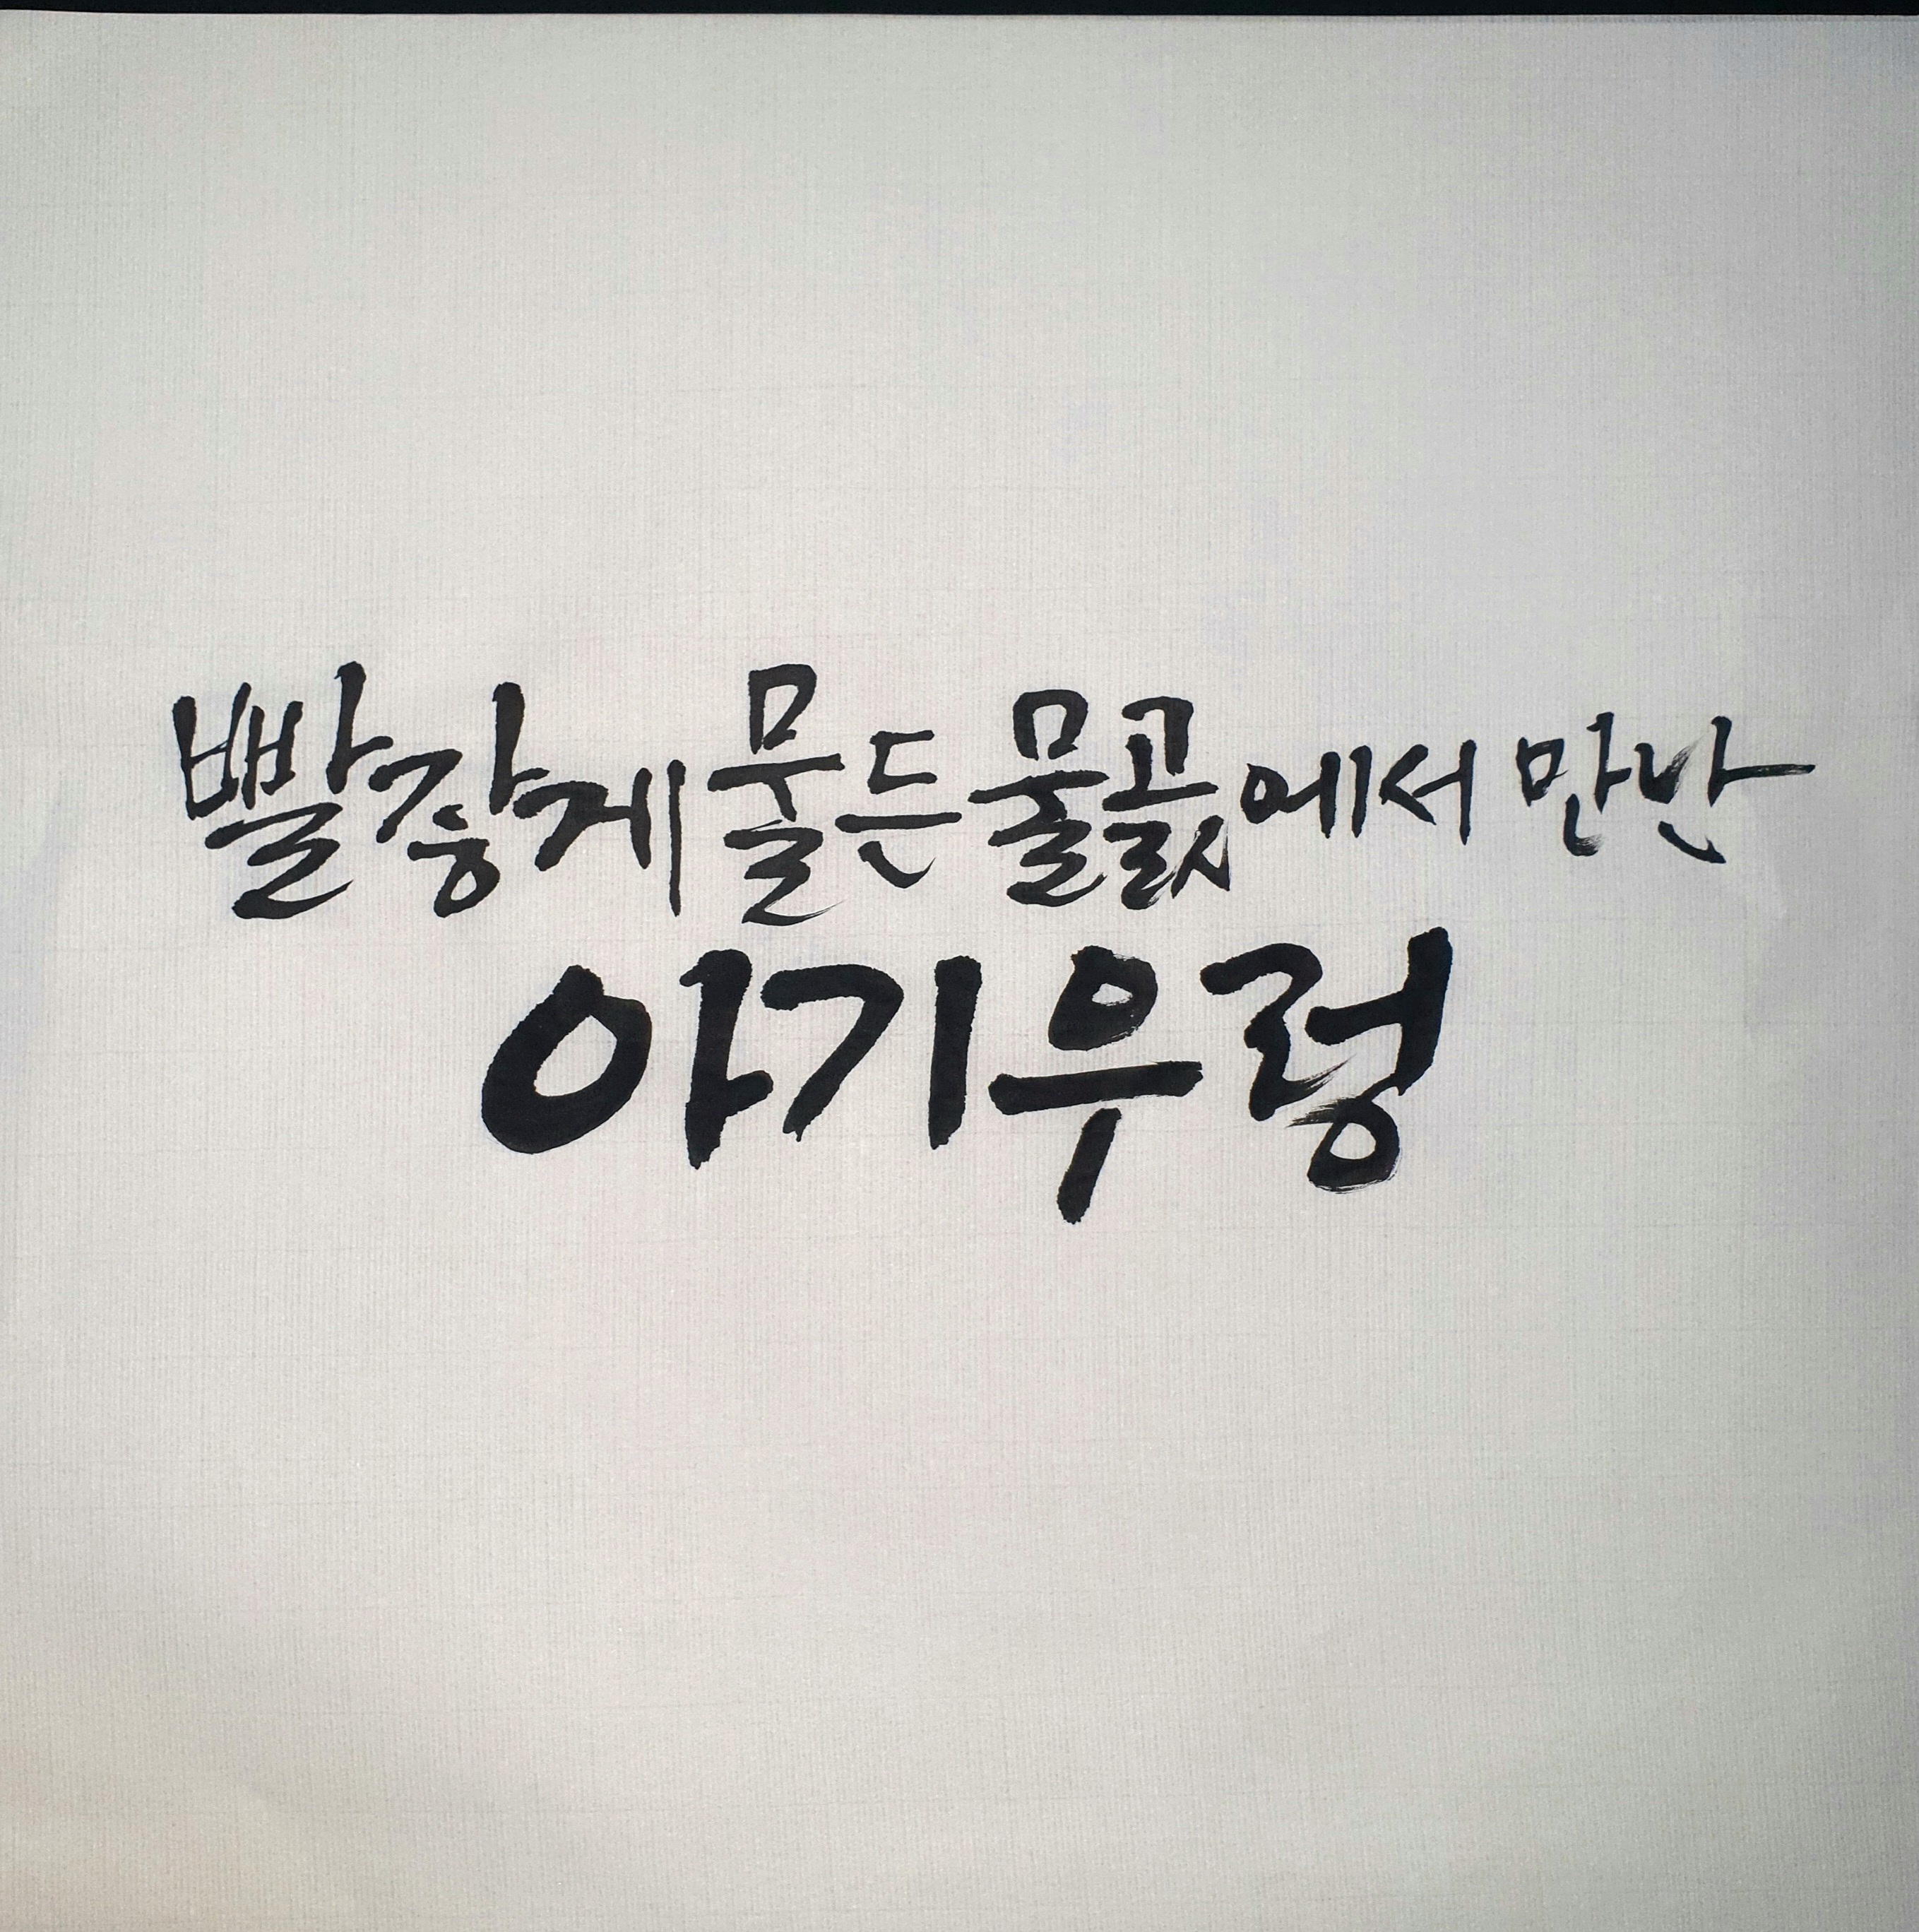 빨갛게 물든 물곬에서 만난
아기우렁